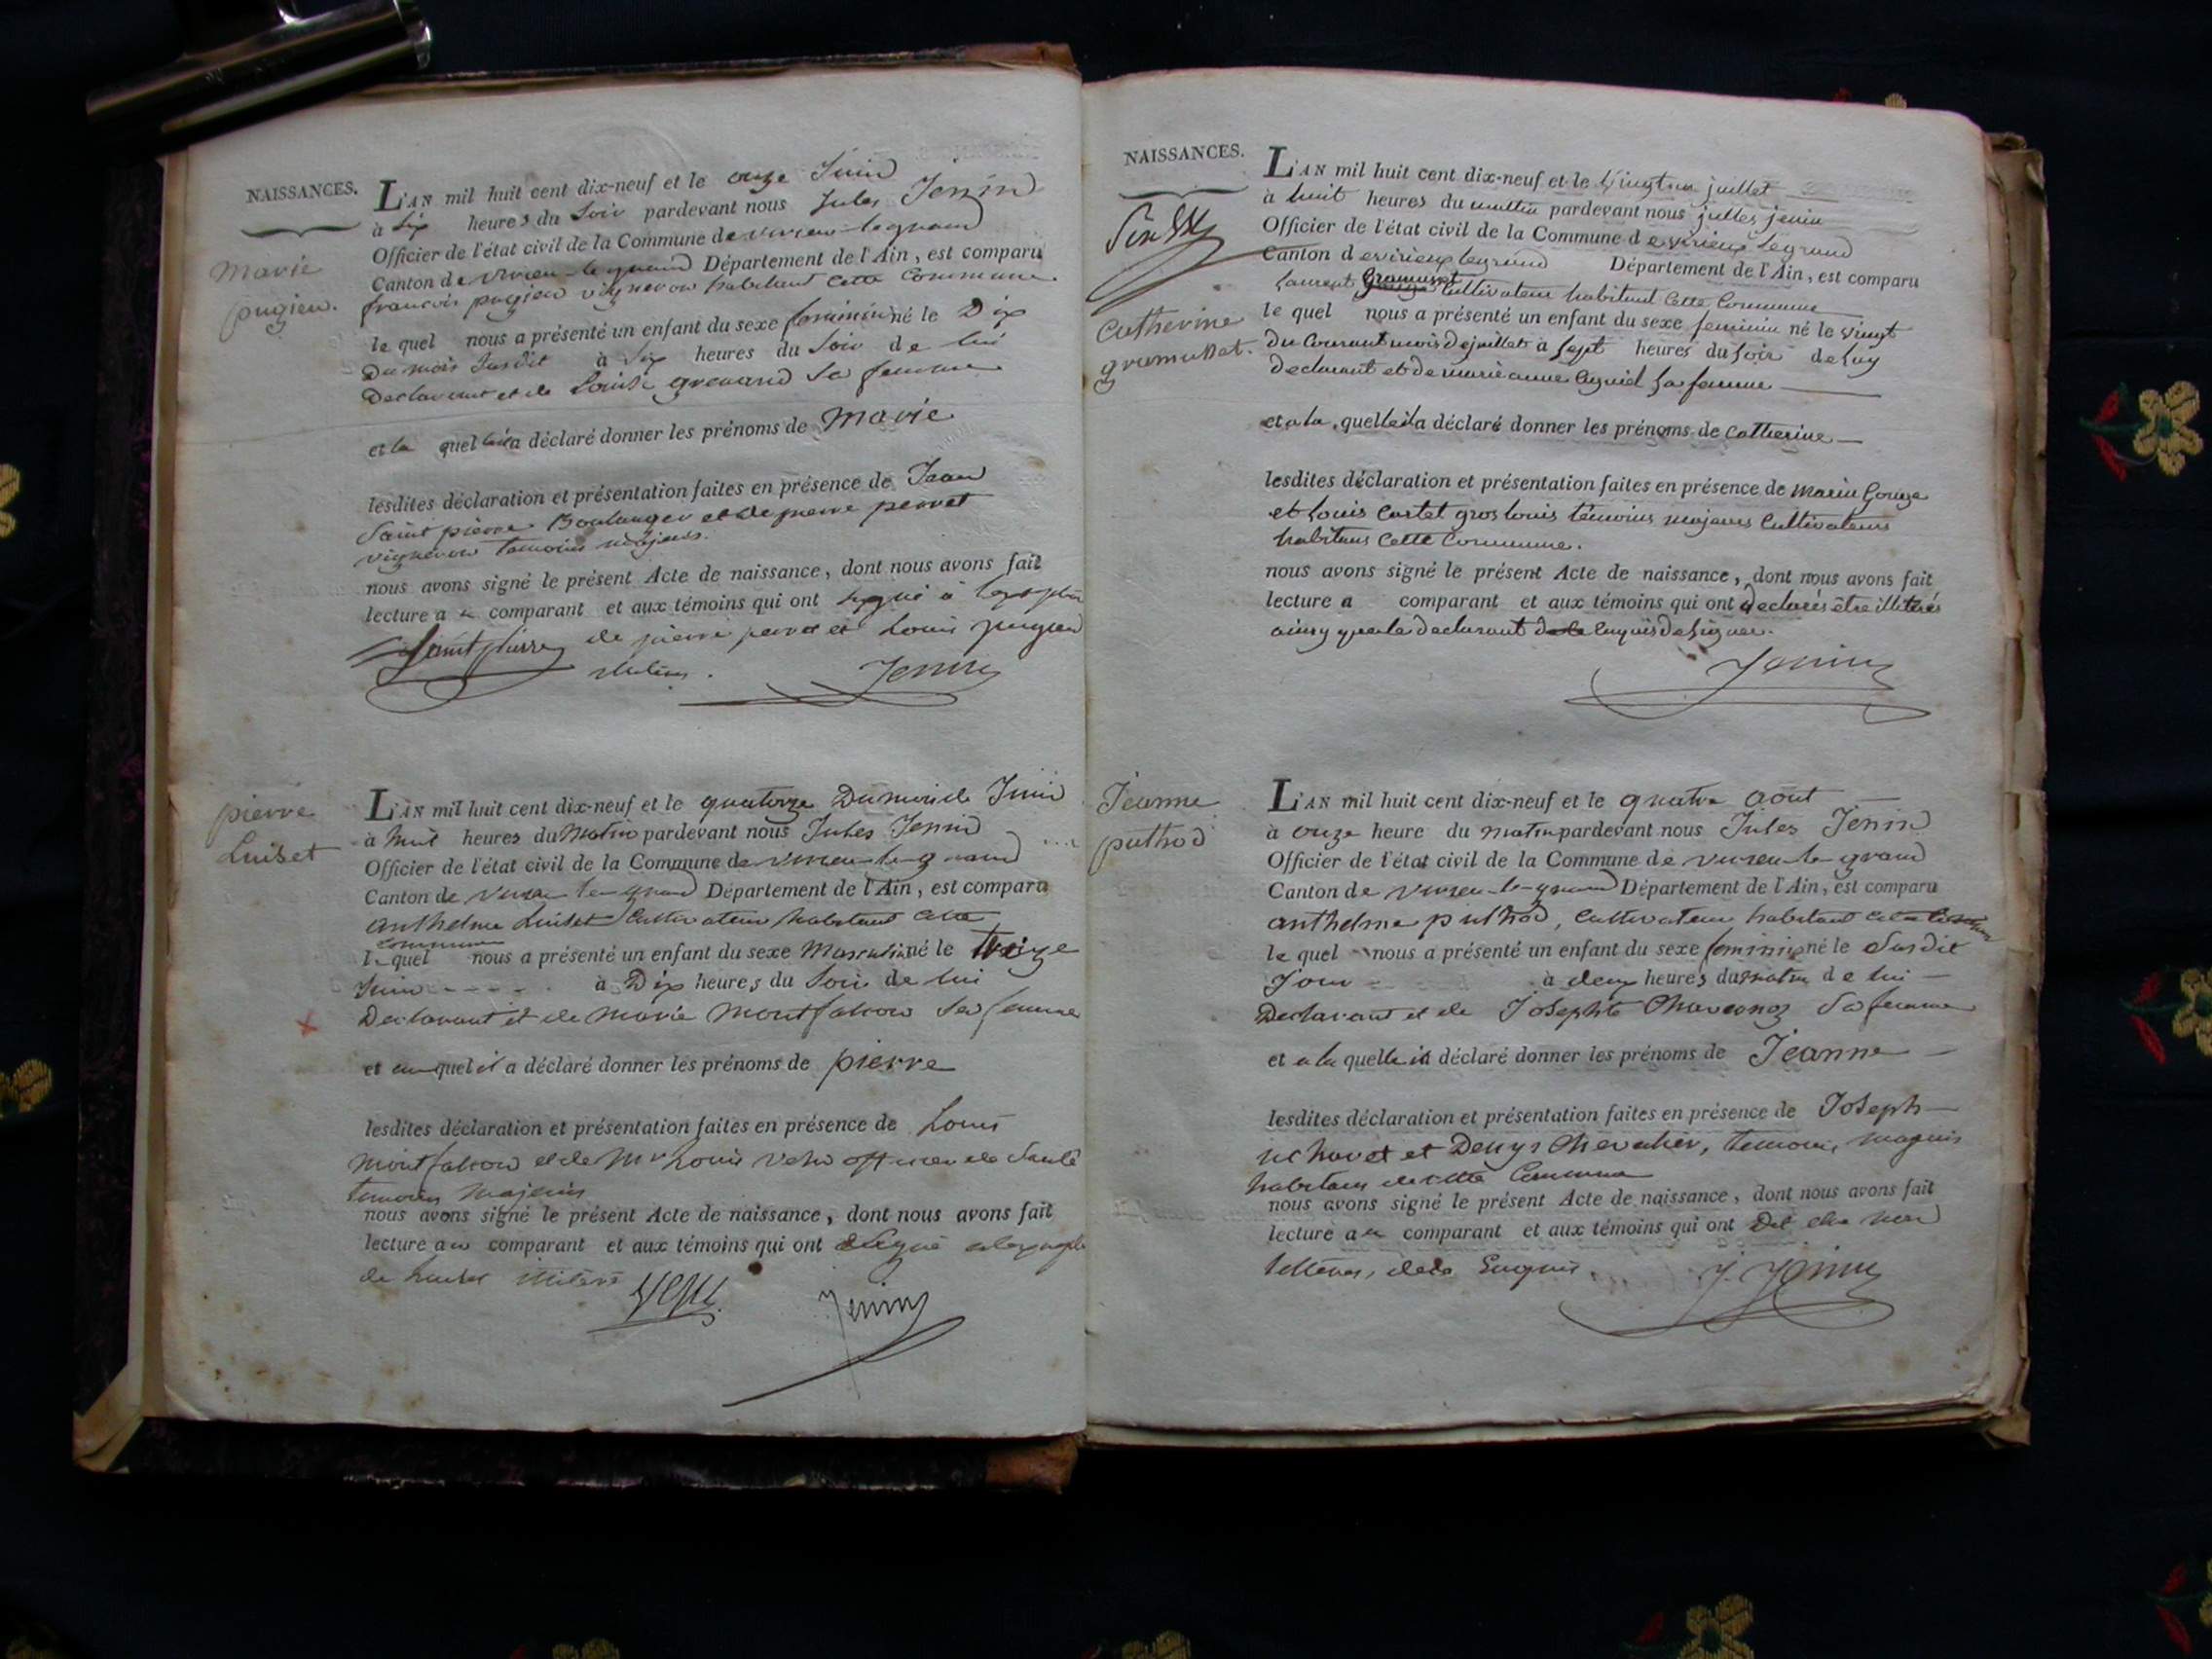 NAISSANCES.
Marie
pugieu.
L'AN mil huit cent dix-neuf et le onze Juin
à Six heures du Soir pardevant nous Jules Jenin
Officier de l'état civil de la Commune de virieu-legrand
Canton de virieu-legrand Département de l'Ain, est comparu
francois pugieu vigneron habitant cette Commune
le quel nous a présenté un enfant du sexe feminin né le Dix
Du mois Susdit à Six heures du Soir de lui
Declarant et de Louise grenand Sa femme
et la quelle a déclaré donner les prénoms de Marie
lesdites déclaration et présentation faites en présence de Jean
Saint pierre Boulanger et de pierre perret
vigneron temoins majeurs.
nous avons signé le présent Acte de naissance, dont nous avons fait
lecture au comparant et aux témoins qui ont signé à
Saint pierre de pierre perret et Louis pugieu
Jenin
pierre
Luiset
L'AN mil huit cent dix-neuf et le quatorze Du mois de Juin
à huit heures du Matin pardevant nous Jules Jenin
Officier de l'état civil de la Commune de virieu-le-grand
Canton de virieu le-grand Département de l'Ain, est comparu
anthelme Luiset Cultivateur habitant cette
commune
le quel nous a présenté un enfant du sexe Masculin né le treize
Juin à Dix heures du Soir de lui
Declarant et de Marie Montfalcon Sa femme
et au quel il a déclaré donner les prénoms de pierre
lesdites déclaration et présentation faites en présence de Louis
Montfalcon et de Mr Louis officier de Santé
temoins majeurs
nous avons signé le présent Acte de naissance, dont nous avons fait
lecture au comparant et aux témoins qui ont signé
de Luiset
Jenin
NAISSANCES.
Catherine
gramusset.
L'AN mil huit cent dix-neuf et le vingtun juillet
à huit heures du mattin pardevant nous julles jenin
Officier de l'état civil de la Commune de virieux legrand
Canton de virieux legrand Département de l'Ain, est comparu
Laurent Gramusset Cultivateur habitant Cette Commune
le quel nous a présenté un enfant du sexe feminin né le vingt
du Courant mois de juillet à Sept heures du Soir de Luy
declarant et de marie anne Sa femme
et a la quelle il a déclaré donner les prénoms de Catherine
lesdites déclaration et présentation faites en présence de marin Gouge
et Louis Cartet gros louis témoins majeurs Cultivateurs
habitans Cette Commune.
nous avons signé le présent Acte de naissance, dont nous avons fait
lecture a comparant et aux témoins qui ont declarés être illiterés
ainsy que le declarant de ce enquis de Signer.
Jenin
Jeanne
puthod
L'AN mil huit cent dix-neuf et le quatre août
à onze heure du matin pardevant nous Jules Jenin
Officier de l'état civil de la Commune de virieu-le-grand
Canton de virieu-le-grand Département de l'Ain, est comparu
anthelme puthod, Cultivateur habitant cette Commune
le quel nous a présenté un enfant du sexe feminin né le Susdit
Jour à deux heures du matin de lui
Declarant et de Josephte Sa femme
et a la quelle il a déclaré donner les prénoms de Jeanne
lesdites déclaration et présentation faites en présence de Joseph
et Denys Chevalier, temoins majeurs
habitans de cette Commune
nous avons signé le présent Acte de naissance, dont nous avons fait
lecture au comparant et aux témoins qui ont Dit être non
lettrés, de ce Enquis.
J. Jenin